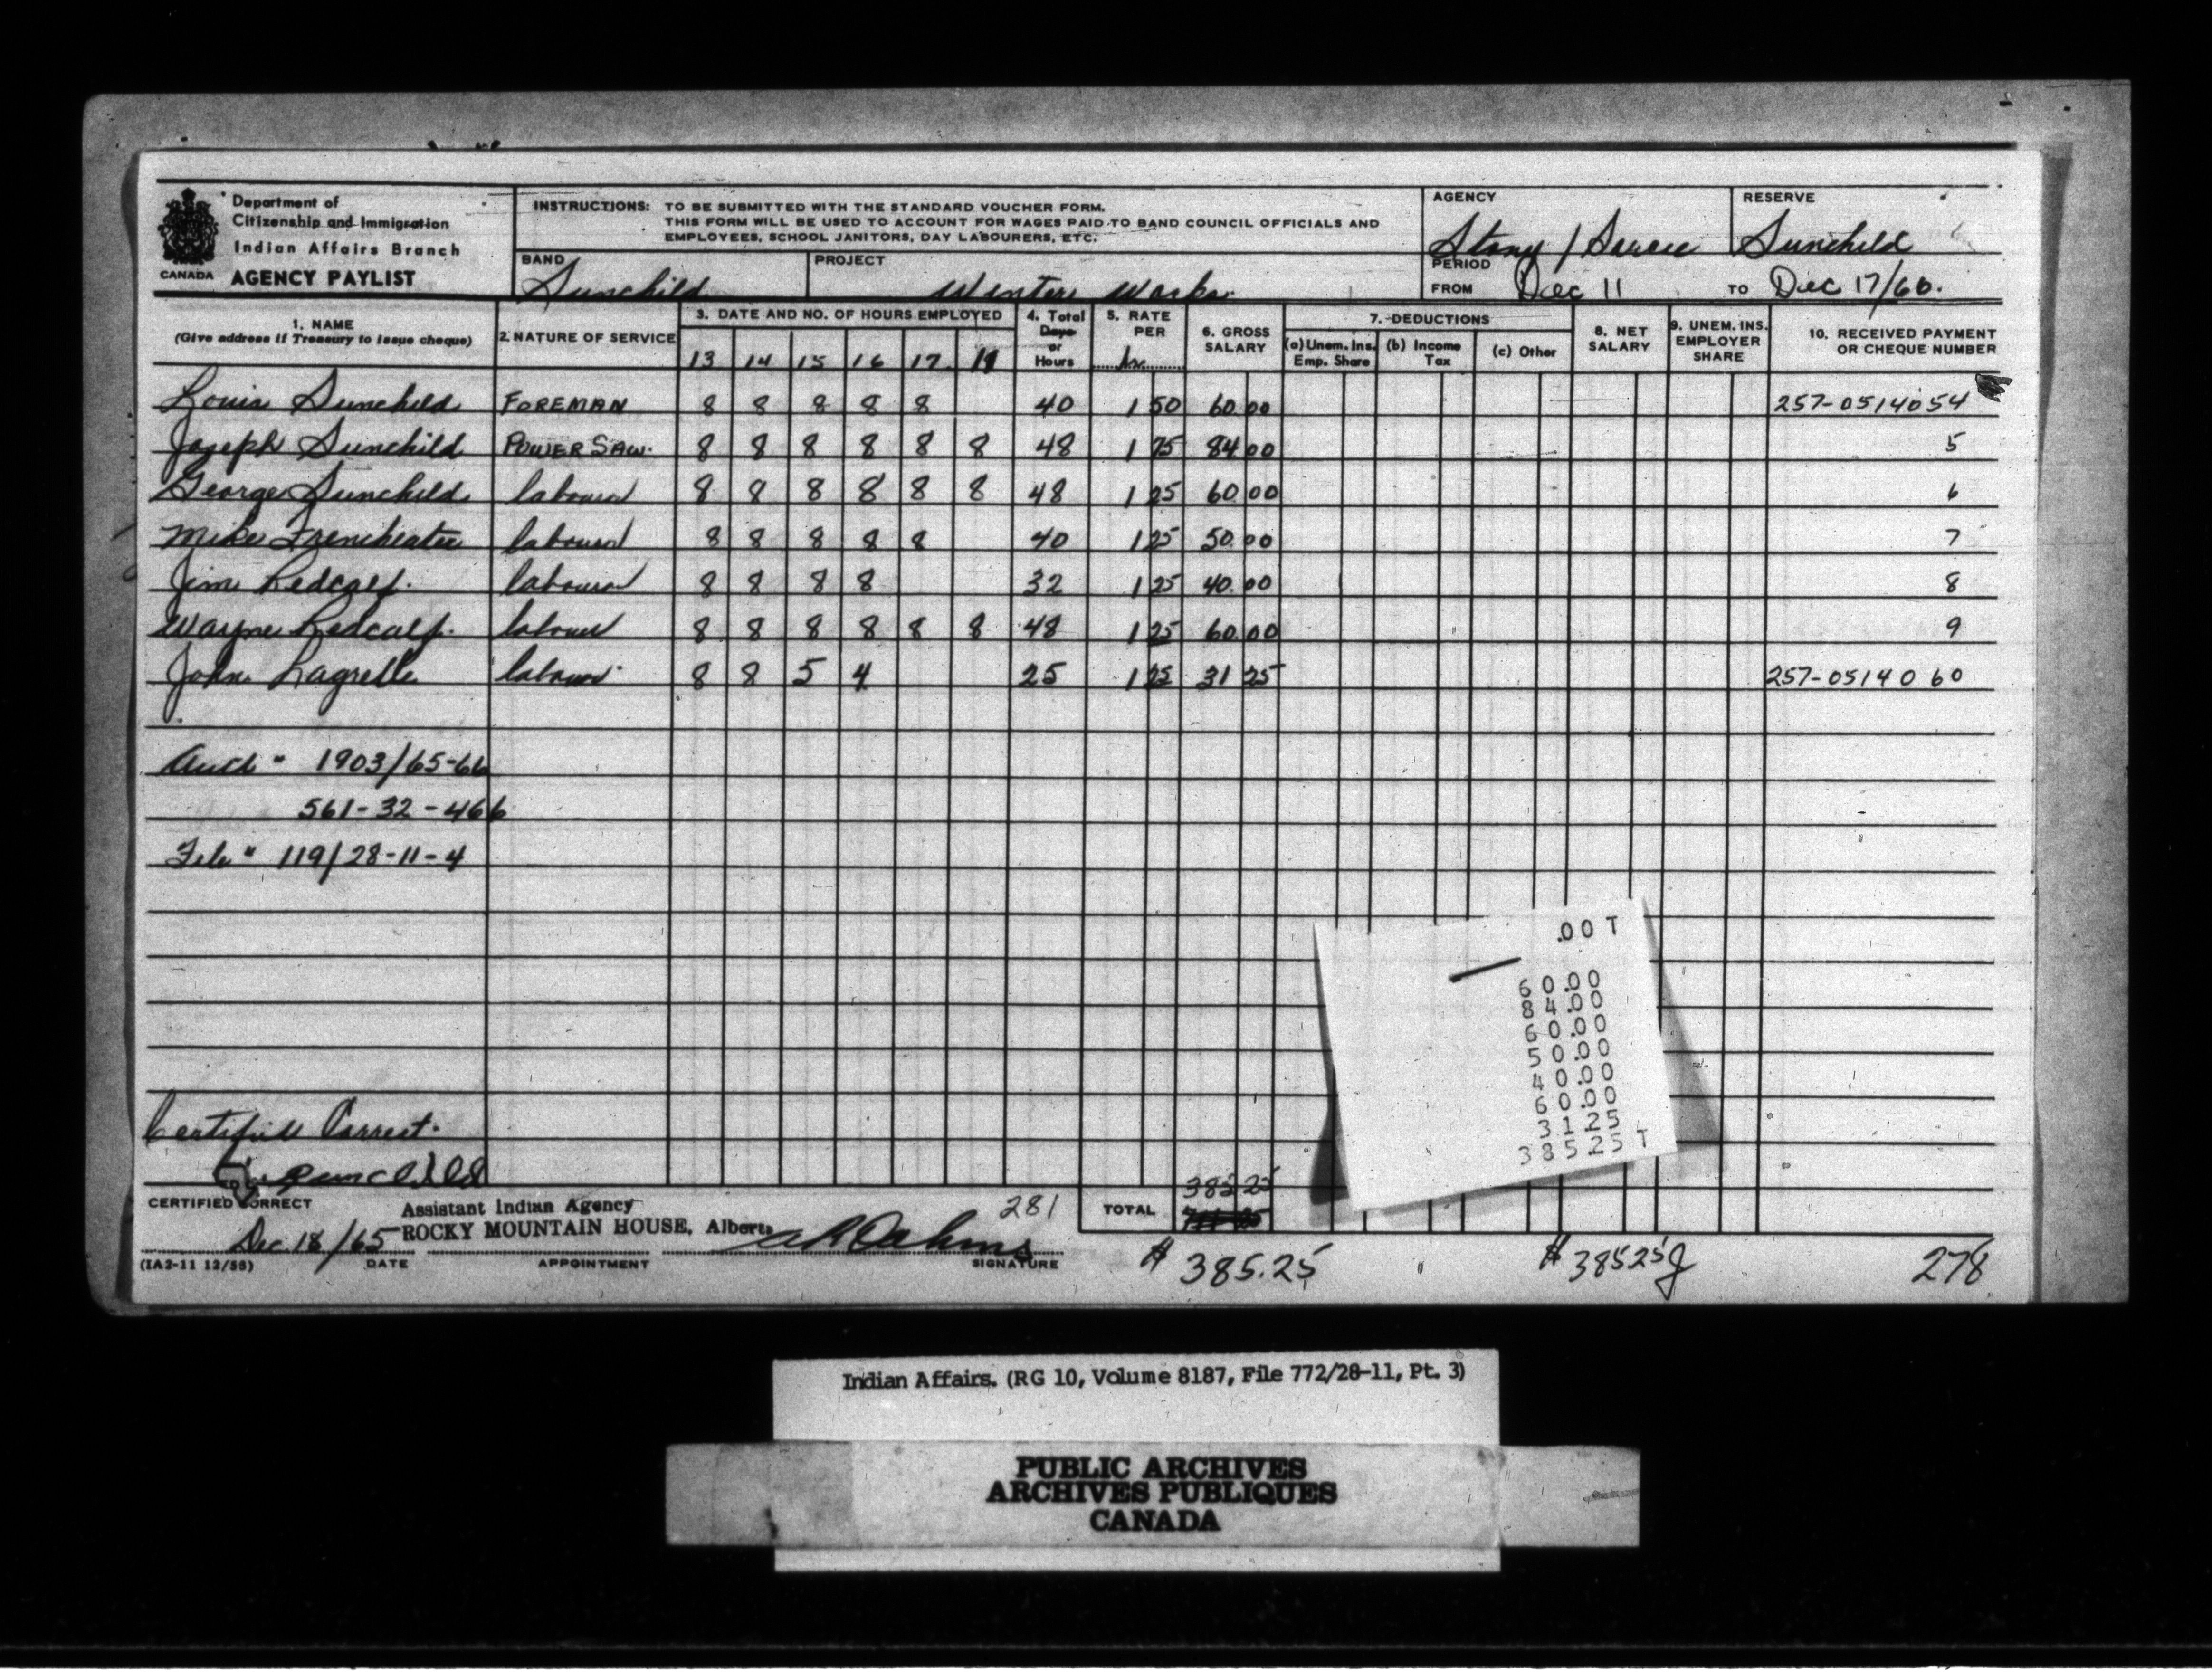 Department of
Citizenship and Immigration
Indian Affairs Branch
CANADA AGENCY PAYLIST
INSTRUCTIONS: TO BE SUBMITTED WITH THE STANDARD VOUCHER FORM.
THIS FORM WILL BE USED TO ACCOUNT FOR WAGES PAID TO BAND COUNCIL OFFICIALS AND
EMPLOYEES, SCHOOL JANITORS, DAY LABOURERS, ETC.
BAND
Sunchild
PROJECT
Winter Works
AGENCY
Stony / Sarcee
RESERVE
Sunchild
PERIOD
FROM Dec 11 TO Dec 17/60.
1. NAME
(Give address if Treasury to issue cheque)
2. NATURE OF SERVICE
3. DATE AND NO. OF HOURS EMPLOYED
13 14 15 16 17 11
4. Total
Days
or
Hours
5. RATE
PER
hr.
6. GROSS
SALARY
7. DEDUCTIONS
(a) Unem. Ins. Emp. Share
(b) Income Tax
(c) Other
8. NET
SALARY
9. UNEM. INS.
EMPLOYER
SHARE
10. RECEIVED PAYMENT
OR CHEQUE NUMBER
Louis Sunchild FOREMAN 8 8 8 8 8 40 1 50 60 00 257-0514054
Joseph Sunchild POWER SAW. 8 8 8 8 8 8 48 1 75 84 00 5
George Sunchild labourer 8 8 8 8 8 8 48 1 25 60 00 6
Mike Frencheater labourer 8 8 8 8 8 40 1 25 50 00 7
Jim Redcalf. labourer 8 8 8 8 32 1 25 40.00 8
Wayne Redcalf. labourer 8 8 8 8 8 8 48 1 25 60.00 9
John Lagrelle labourer 8 8 5 4 25 1 25 31 25 257-0514060
Auth " 1903/65-66
561-32-466
File " 119/28-11-4
.00 T
60.00
84.00
60.00
50.00
40.00
60.00
31.25
385.25 T
Certified Correct.
Sunchild
CERTIFIED CORRECT
Assistant Indian Agency
ROCKY MOUNTAIN HOUSE, Alberta
281
TOTAL
385 25
Dec. 18/65
(IA2-11 12/58) DATE APPOINTMENT SIGNATURE
$ 385.25
$ 385.25
278
Indian Affairs. (RG 10, Volume 8187, File 772/28-11, Pt. 3)
PUBLIC ARCHIVES
ARCHIVES PUBLIQUES
CANADA